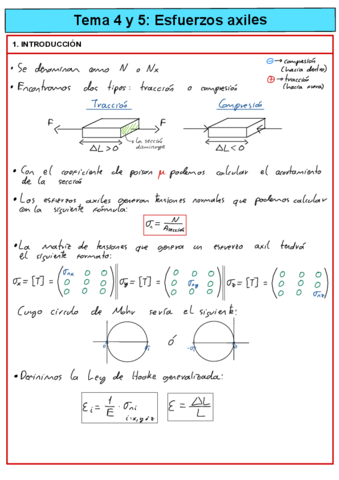 Tema 4 y 5: Esfuerzos axiles
1. INTRODUCCIÓN
• Se denominan como N o Nx
⊖ → compresión
(hacia dentro)
⊕ → tracción
(hacia fuera)
• Encontramos dos tipos: tracción o compresión
Tracción
Compresión
F
F
ΔL>0
La sección
disminuye
ΔL<0
• Con el coeficiente de poison μ podemos calcular el acortamiento
de la sección
• Los esfuerzos axiles generan tensiones normales que podemos calcular
con la siguiente fórmula:
• La matriz de tensiones que genera un esfuerzo axil tendrá
el siguiente formato:
σx = [T] = (σnx 0 0 0 0 0 0 0 0) σy = [T] = (0 0 0 0 σny 0 0 0 0) σz = [T] = (0 0 0 0 0 0 0 0 σnz)
Cuyo círculo de Mohr sería el siguiente:
ó
• Definimos la Ley de Hooke generalizada:
εi = 1/E · σni i=x,y o z
ε = ΔL/L